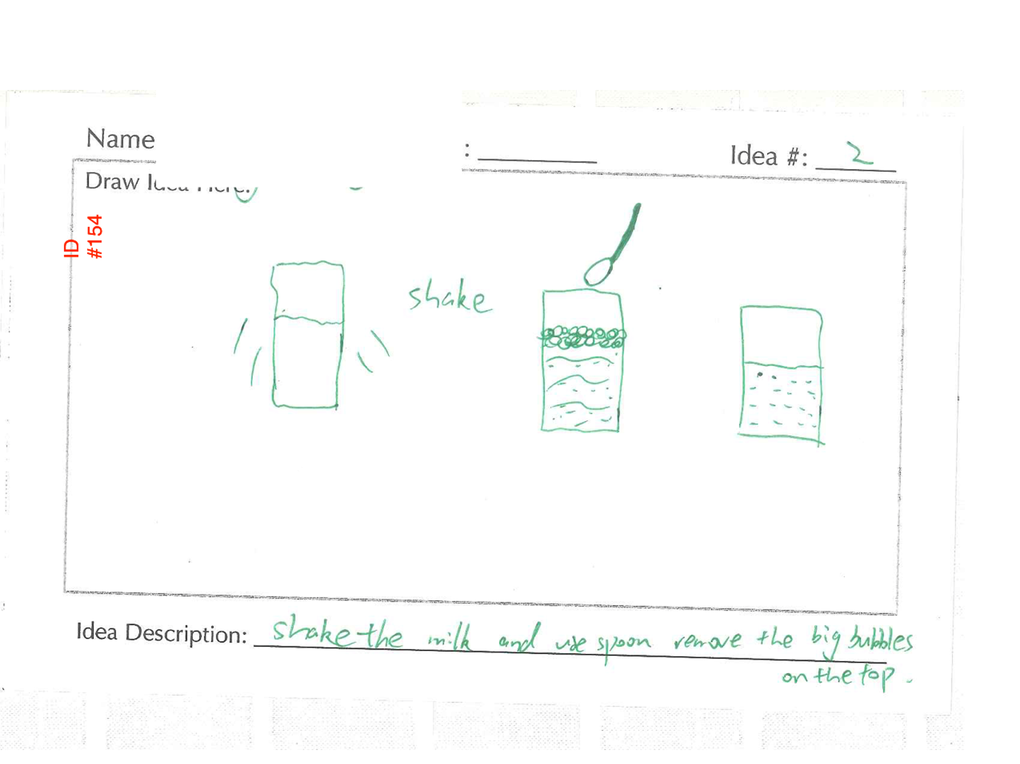 Name : Idea #: 2
Draw Idea Here:
ID
#154
shake
Idea Description: shake the milk and use spoon remove the big bubbles
on the top.